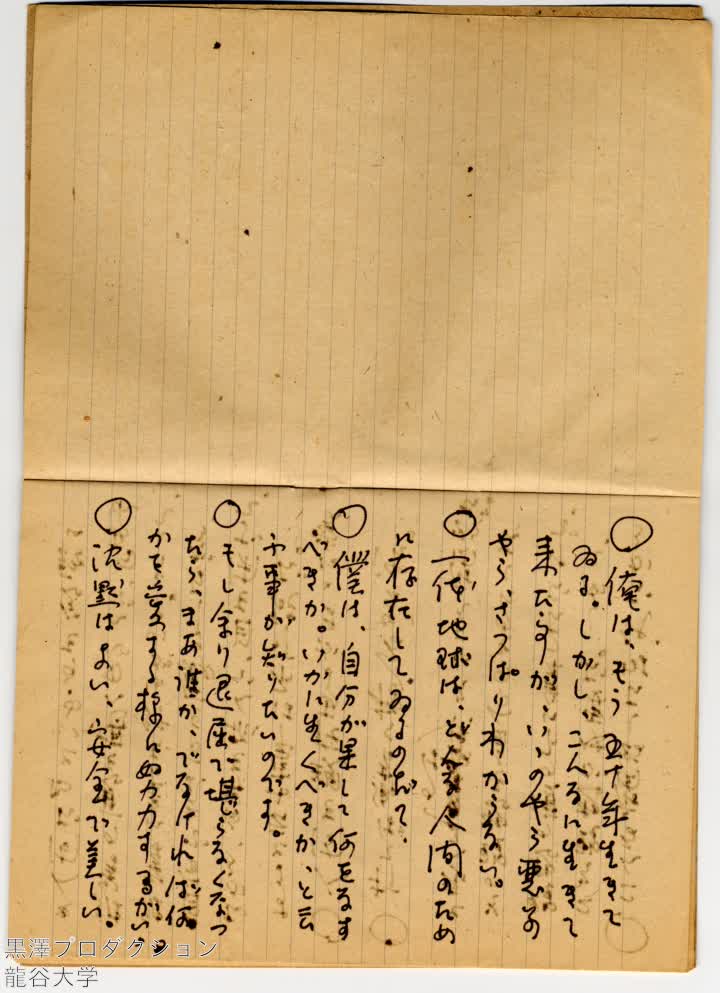 ○ 俺は、もう五十年生きて
ゐる。しかし、こんなに生きて
来た方が、いゝのやら悪いの
やら、さっぱりわからない。
○ 一体地球は、どんな人間のため
に存在してゐるのだて、
○ 僕は、自分が果して何をなす
べきか。いかに生くべきか、と云
ふ事が知りたいのです。
○ もし余り退屈で堪らなくなっ
たら、まあ誰か、でなければ何
かを愛する様に努力するがいゝ
○ 沈黙はよい、安全で美しい。
黒澤プロダクション
龍谷大学